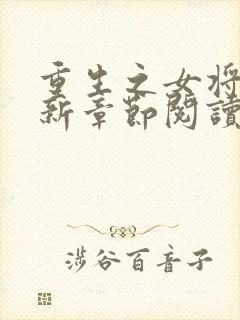 重生之女将
新章節閱讀
涉谷百音子